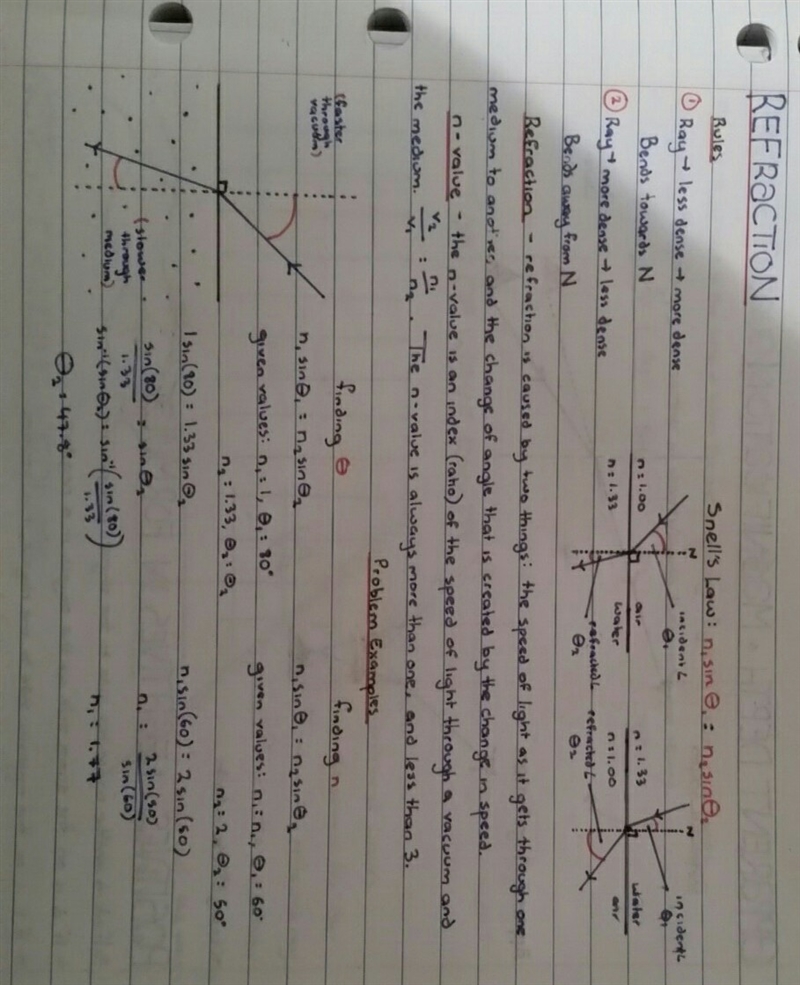 REFRACTION
Rules
① Ray → less dense → more dense
Bends towards N
② Ray → more dense → less dense
Bends away from N
Snell's Law: n₁ sin θ₁ = n₂ sin θ₂
N
incident ∠
θ₁
n = 1.00
air
n = 1.33
water
refracted ∠
θ₂
N
incident ∠
θ₁
n = 1.33
water
n = 1.00
air
refracted ∠
θ₂
Refraction - refraction is caused by two things: the speed of light as it gets through one
medium to another, and the change of angle that is created by the change in speed.
n-value - the n-value is an index (ratio) of the speed of light through a vacuum and
the medium. v₂/v₁ = n₁/n₂. The n-value is always more than one, and less than 3.
Problem Examples
(faster
through
vacuum)
(slower
through
medium)
finding θ
n₁ sin θ₁ = n₂ sin θ₂
given values: n₁ = 1, θ₁ = 80°
n₂ = 1.33, θ₂ = θ₂
1 sin(80) = 1.33 sin θ₂
sin(80)/1.33 = sin θ₂
sin⁻¹(sin θ₂) = sin⁻¹(sin(80)/1.33)
θ₂ = 47.8°
finding n
n₁ sin θ₁ = n₂ sin θ₂
given values: n₁ = n₁, θ₁ = 60°
n₂ = 2, θ₂ = 50°
n₁ sin(60) = 2 sin(50)
n₁ = 2 sin(50)/sin(60)
n₁ = 1.77